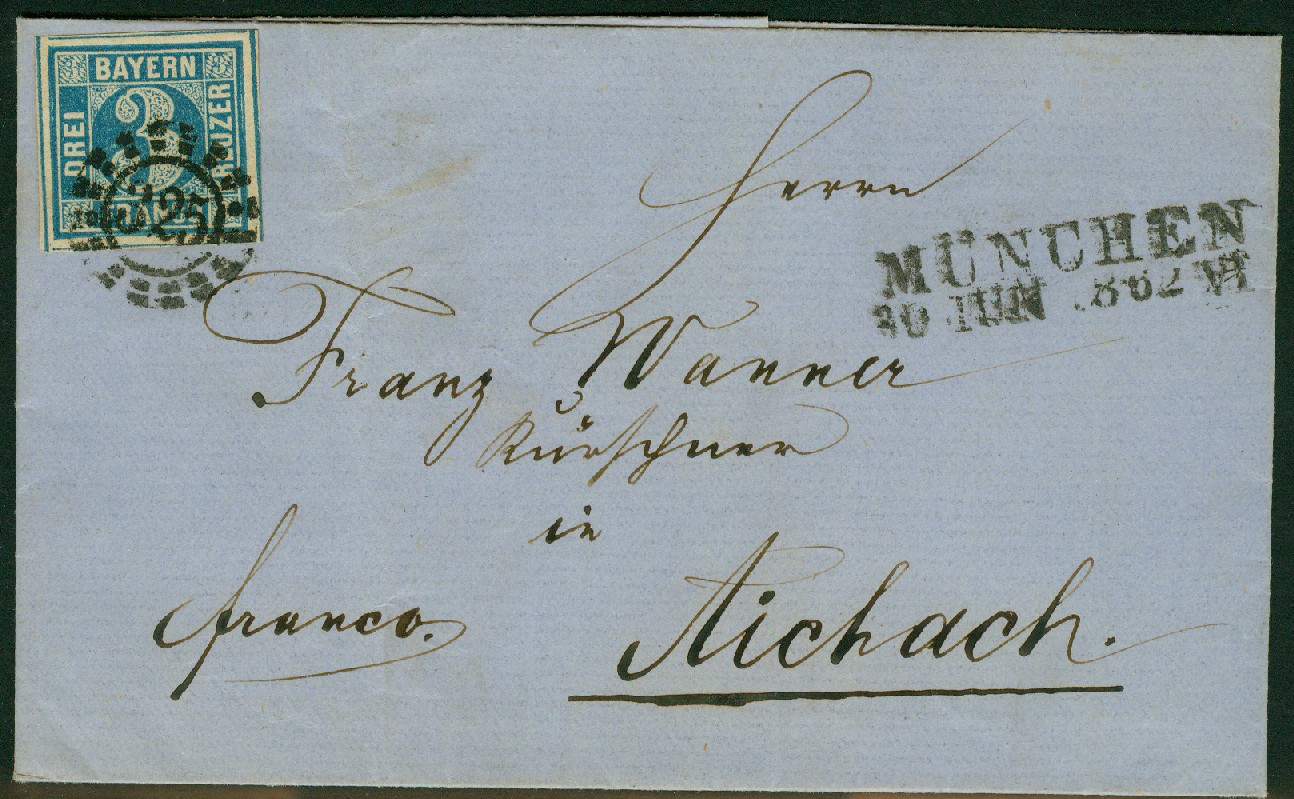 BAYERN
DREI
3
KREUZER
FRANCO
325
MÜNCHEN
30 JUN 1862 VI
Herrn
Franz Wanner
Kürschner
in
Aichach.
franco.